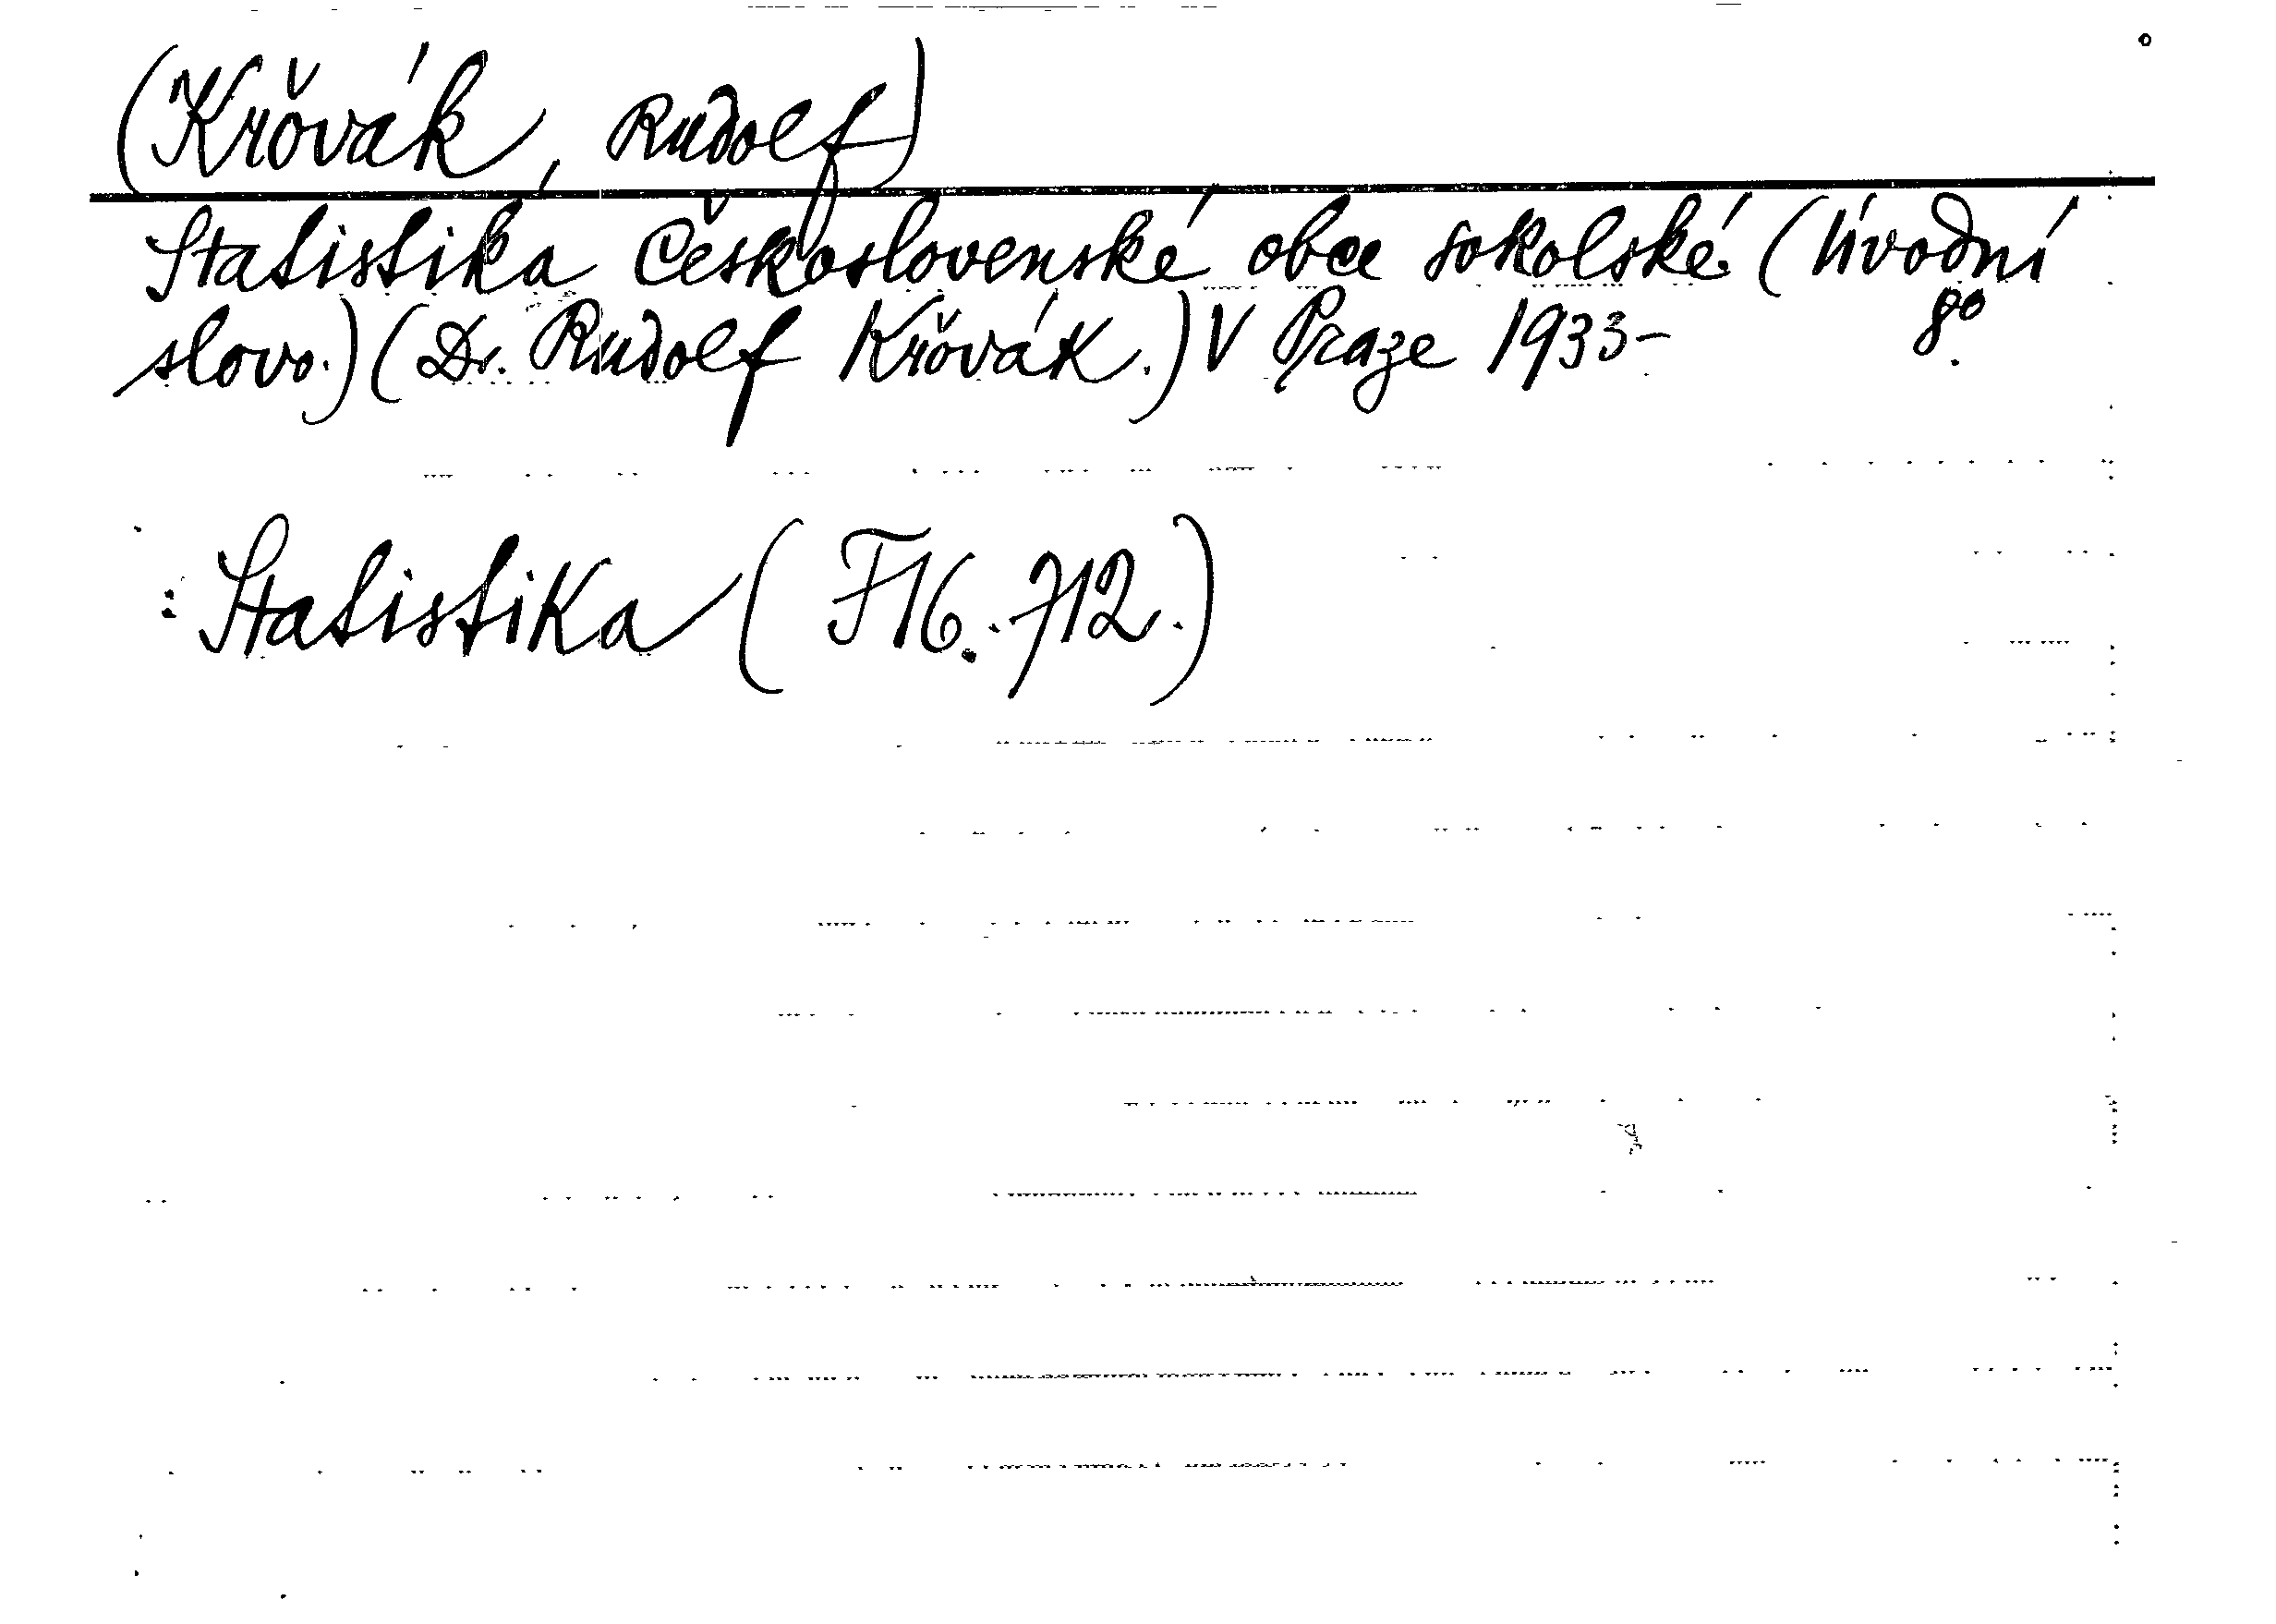 (Křovák, Rudolf)
Statistika Československé obce sokolské. (Úvodní
slovo.) (Dr. Rudolf Křovák.) V Praze 1933- 8°.
Statistika (F16.712.)